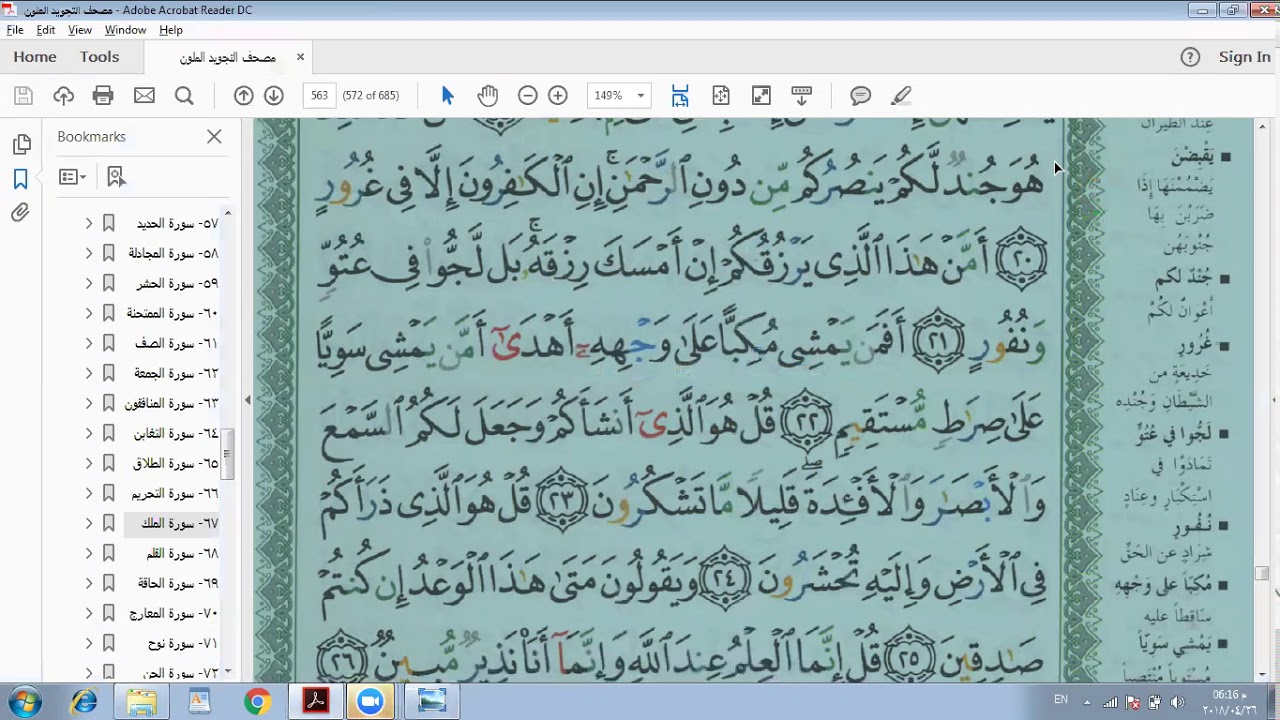 مصحف التجويد الملون - Adobe Acrobat Reader DC
File Edit View Window Help
Home Tools مصحف التجويد الملون × Sign In
563 (572 of 685) 149%
Bookmarks
٥٧- سورة الحديد
٥٨- سورة المجادلة
٥٩- سورة الحشر
٦٠- سورة الممتحنة
٦١- سورة الصف
٦٢- سورة الجمعة
٦٣- سورة المنافقون
٦٤- سورة التغابن
٦٥- سورة الطلاق
٦٦- سورة التحريم
٦٧- سورة الملك
٦٨- سورة القلم
٦٩- سورة الحاقة
٧٠- سورة المعارج
٧١- سورة نوح
٧٢- سورة الجن
هُوَ جُندٌ لَّكُمْ يَنصُرُكُم مِّن دُونِ ٱلرَّحْمَـٰنِ ۚ إِنِ ٱلْكَـٰفِرُونَ إِلَّا فِى غُرُورٍ
٢٠ أَمَّنْ هَـٰذَا ٱلَّذِى يَرْزُقُكُمْ إِنْ أَمْسَكَ رِزْقَهُۥ ۚ بَل لَّجُّوا۟ فِى عُتُوٍّ
وَنُفُورٍ ٢١ أَفَمَن يَمْشِى مُكِبًّا عَلَىٰ وَجْهِهِۦٓ أَهْدَىٰٓ أَمَّن يَمْشِى سَوِيًّا
عَلَىٰ صِرَٰطٍ مُّسْتَقِيمٍ ٢٢ قُلْ هُوَ ٱلَّذِىٓ أَنشَأَكُمْ وَجَعَلَ لَكُمُ ٱلسَّمْعَ
وَٱلْأَبْصَـٰرَ وَٱلْأَفْـِٔدَةَ ۖ قَلِيلًا مَّا تَشْكُرُونَ ٢٣ قُلْ هُوَ ٱلَّذِى ذَرَأَكُمْ
فِى ٱلْأَرْضِ وَإِلَيْهِ تُحْشَرُونَ ٢٤ وَيَقُولُونَ مَتَىٰ هَـٰذَا ٱلْوَعْدُ إِن كُنتُمْ
صَـٰدِقِينَ ٢٥ قُلْ إِنَّمَا ٱلْعِلْمُ عِندَ ٱللَّهِ وَإِنَّمَآ أَنَا۠ نَذِيرٌ مُّبِينٌ ٢٦
عِنْدَ الطَّيَرانِ
■ يَقْبِضْنَ
يَضْمُمْنَهَا إِذَا
ضَرَبْنَ بِهَا
جُنُوبَهُن
■ جُنْدٌ لكم
أَعْوَانٌ لكُمْ
■ غُرُورٍ
خَدِيعَةٍ من
الشَّيْطَانِ وَجُنْدِه
■ لَجُّوا في عُتُوٍّ
تَمَادَوْا في
اسْتِكْبَارٍ وعِنَادٍ
■ نُـفُـورٍ
شِرَادٍ عن الحَقِّ
■ مُكِبّاً على وَجْهِهِ
ساقِطاً عليه
■ يَمْشِي سَوِيّاً
مُسْتَوِياً مُنْتَصِباً
EN
٠٦:١٦ م
٢٠١٨/٠٤/٢٦